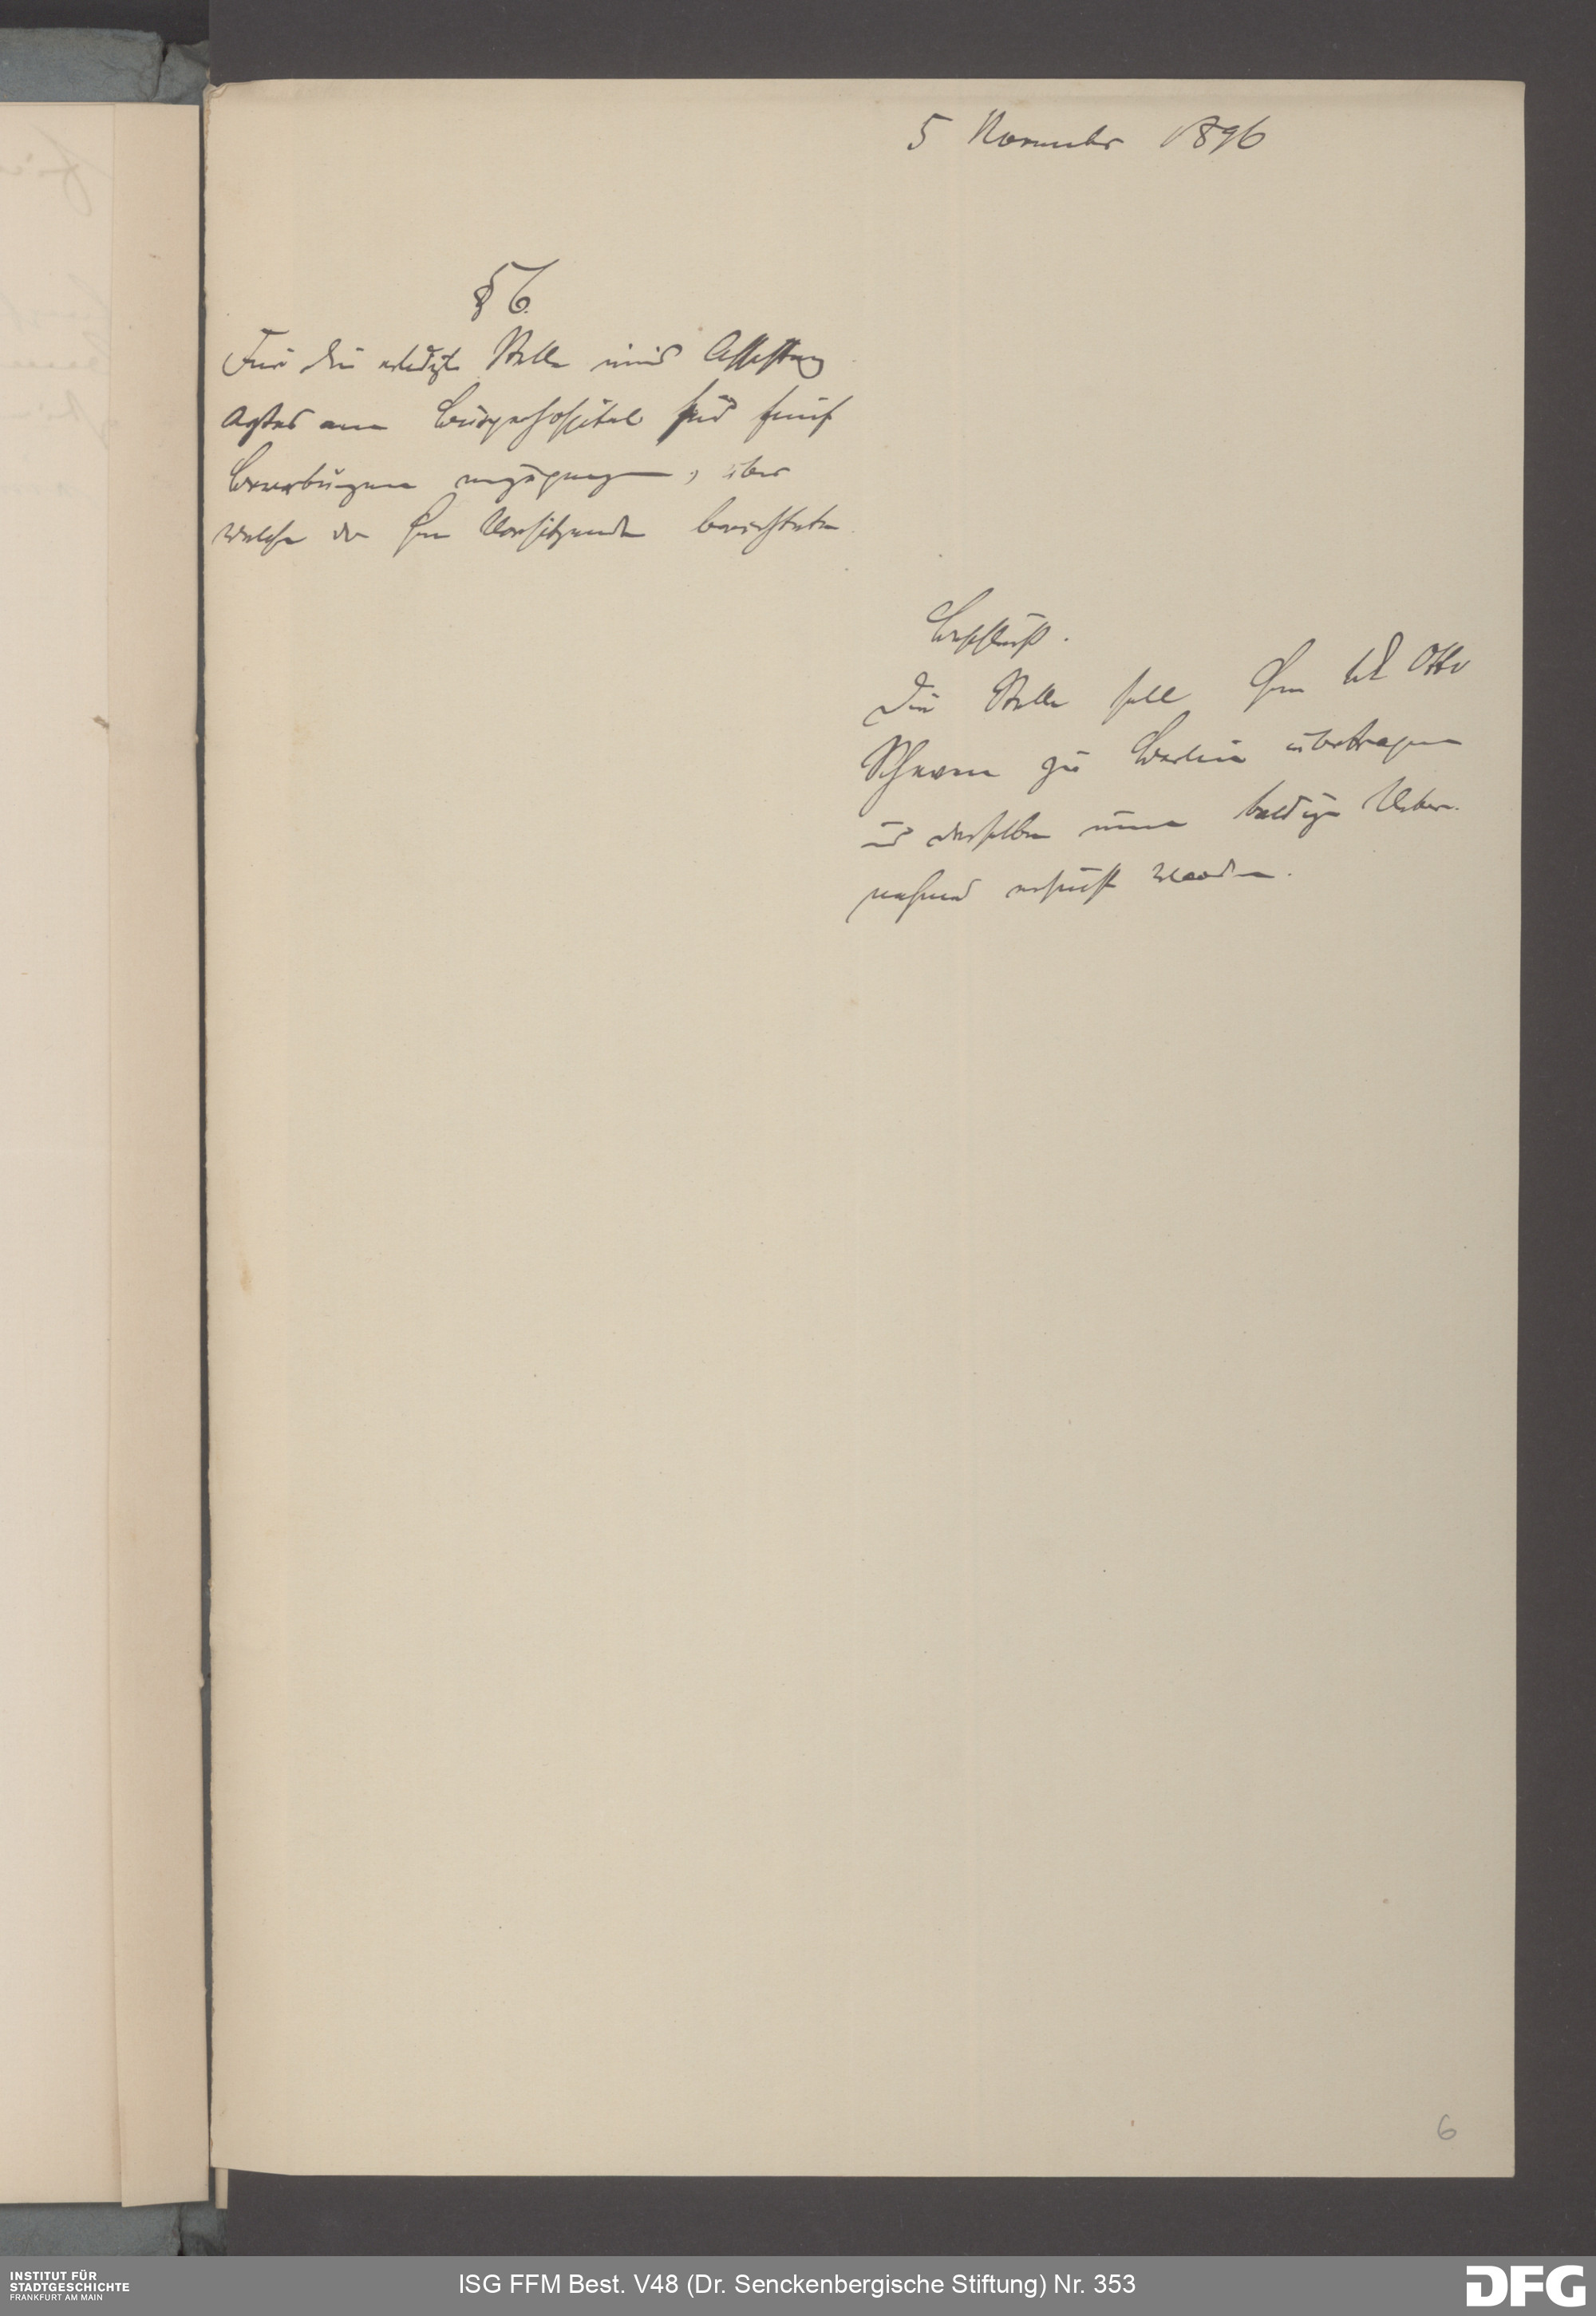 5 November 1896
§ 6.
Für die erledigte Stelle eines Assistenz
Arztes am Bürgerhospital sind fünf
Bewerbungen eingegangen, über
welche der Herr Vorsitzende berichtete
Beschluß.
Die Stelle soll Herrn Otto
zu Berlin übertragen
u derselbe um baldige Ueber-
nahme ersucht werden.
6
INSTITUT FÜR
STADTGESCHICHTE
FRANKFURT AM MAIN
ISG FFM Best. V48 (Dr. Senckenbergische Stiftung) Nr. 353
DFG